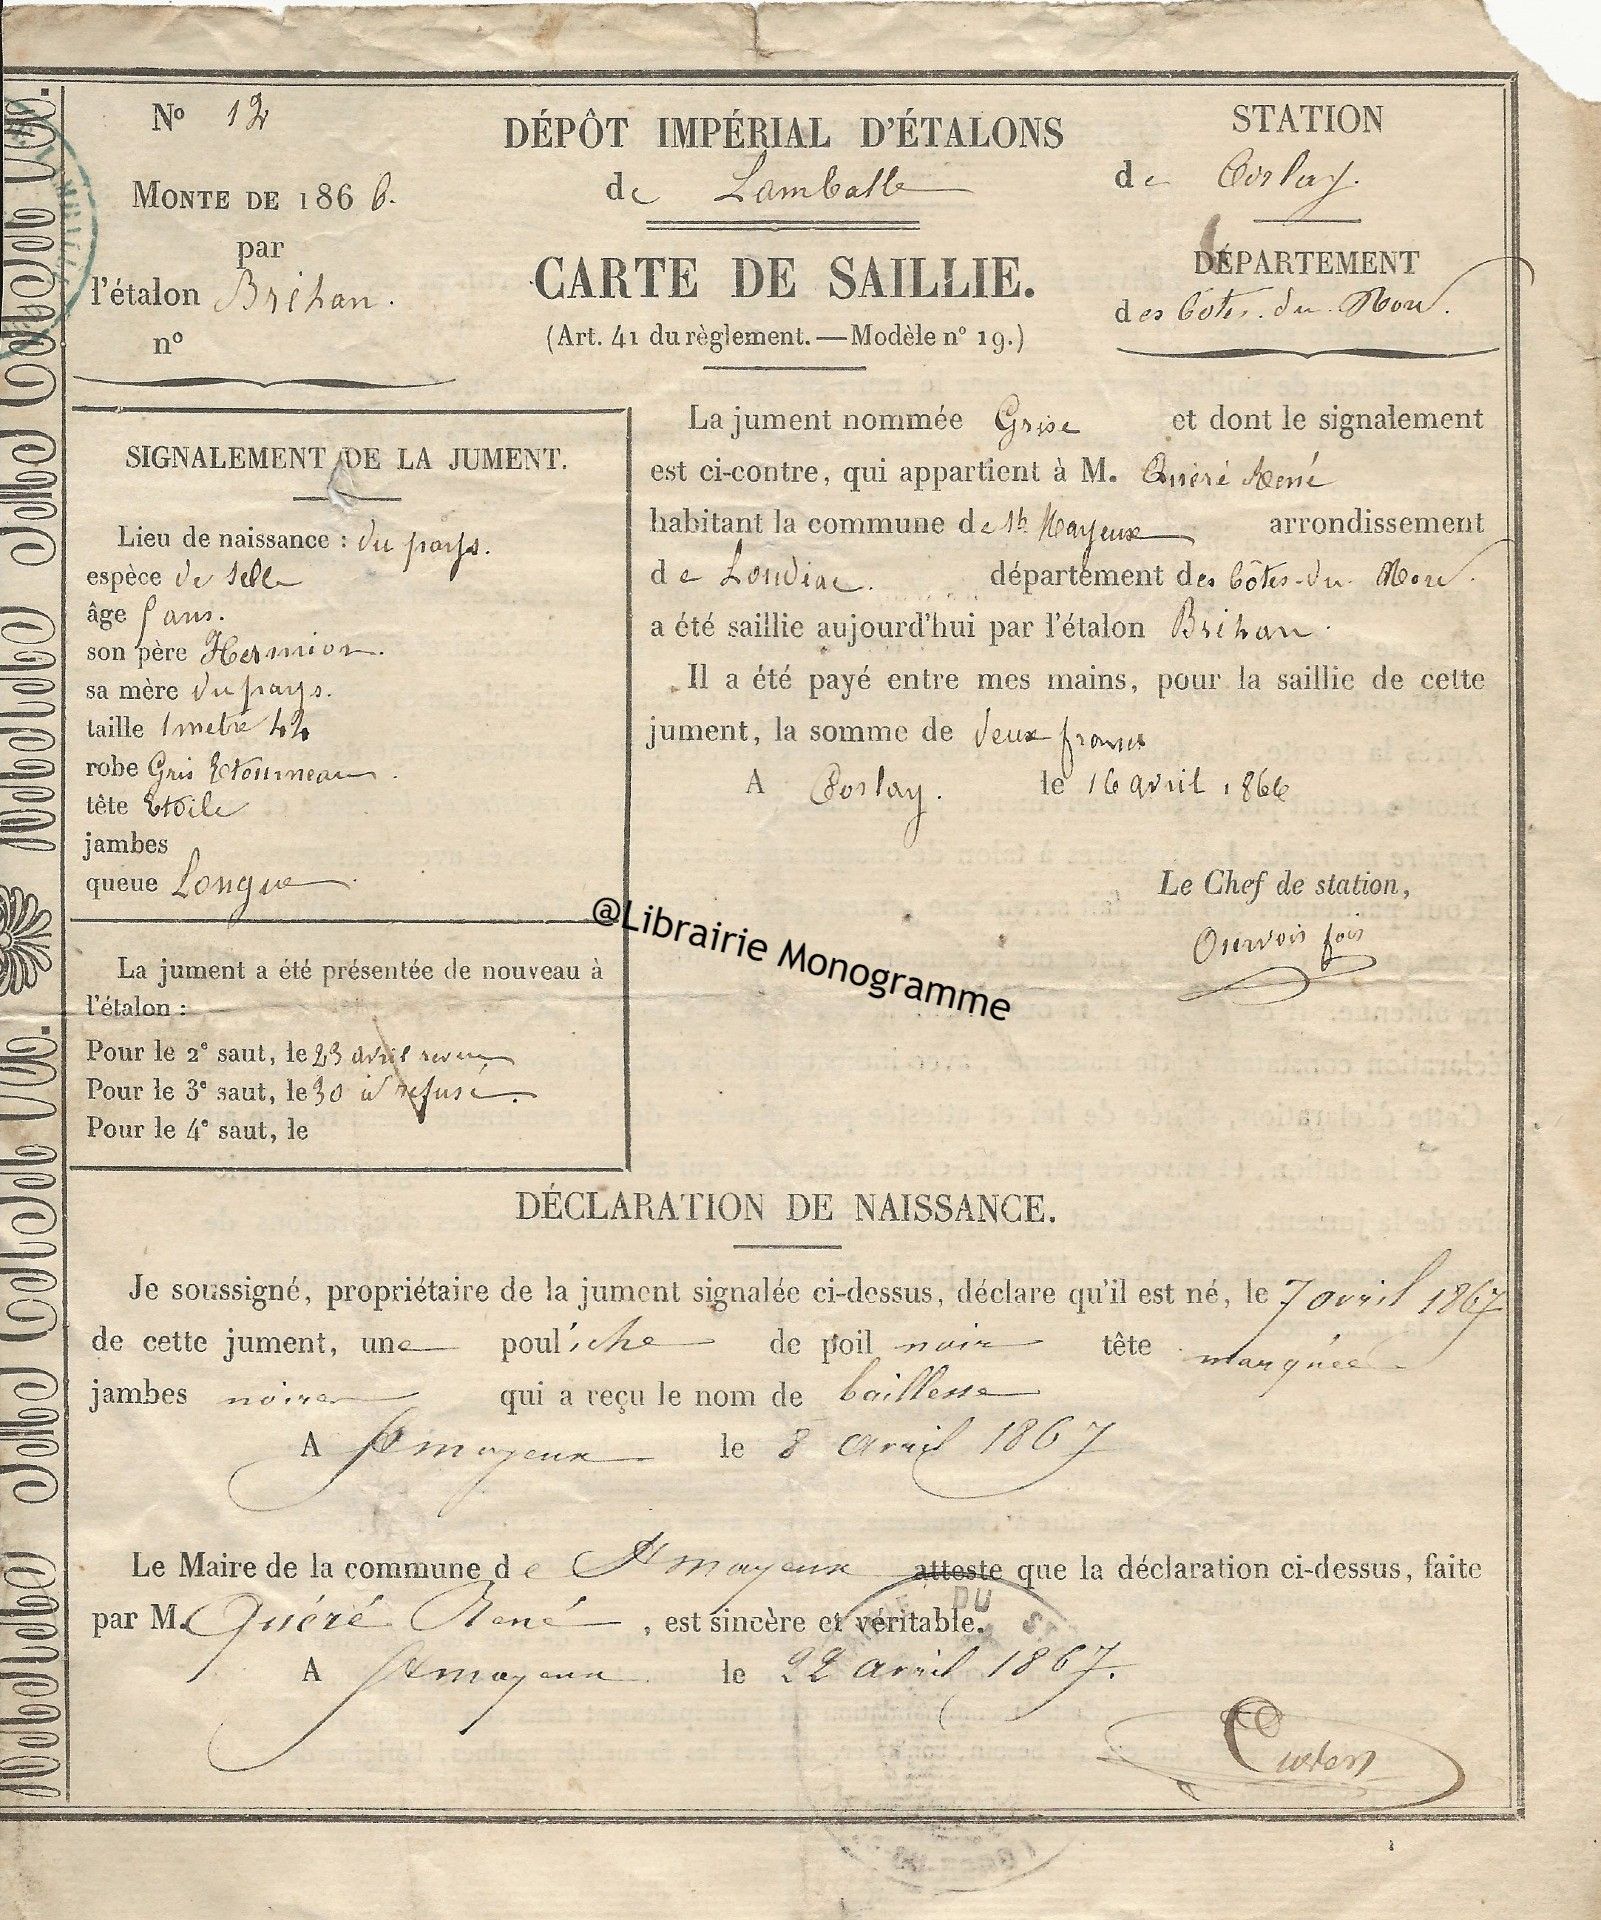 N° 12
MONTE DE 1866.
par
l'étalon Bréhan.
n°
DÉPÔT IMPÉRIAL D'ÉTALONS
de Lamballe
CARTE DE SAILLIE.
(Art. 41 du règlement. — Modèle n° 19.)
STATION
de Corlay.
DÉPARTEMENT
des Côtes-du-Nord.
SIGNALEMENT DE LA JUMENT.
Lieu de naissance : du pays.
espèce de selle
âge 5 ans.
son père Hermion.
sa mère du pays.
taille 1 metre 44
robe Gris Etourneau.
tête Etoile
jambes
queue Longue
La jument a été présentée de nouveau à
l'étalon :
Pour le 2e saut, le 23 avril
Pour le 3e saut, le 30 id refusé.
Pour le 4e saut, le
La jument nommée Grise et dont le signalement
est ci-contre, qui appartient à M. Quéré René
habitant la commune de St Mayeux arrondissement
de Loudéac. département des Côtes-du-Nord.
a été saillie aujourd'hui par l'étalon Bréhan.
Il a été payé entre mes mains, pour la saillie de cette
jument, la somme de deux francs
A Corlay. le 16 avril 1866
Le Chef de station,
Ourvois fois
@Librairie Monogramme
DÉCLARATION DE NAISSANCE.
Je soussigné, propriétaire de la jument signalée ci-dessus, déclare qu'il est né, le 7 avril 1867
de cette jument, une pouliche de poil noir tête marquée
jambes noires qui a reçu le nom de
A St mayeux le 8 avril 1867
Le Maire de la commune de St mayeux atteste que la déclaration ci-dessus, faite
par M. Quéré René, est sincère et véritable.
A St mayeux le 22 avril 1867.